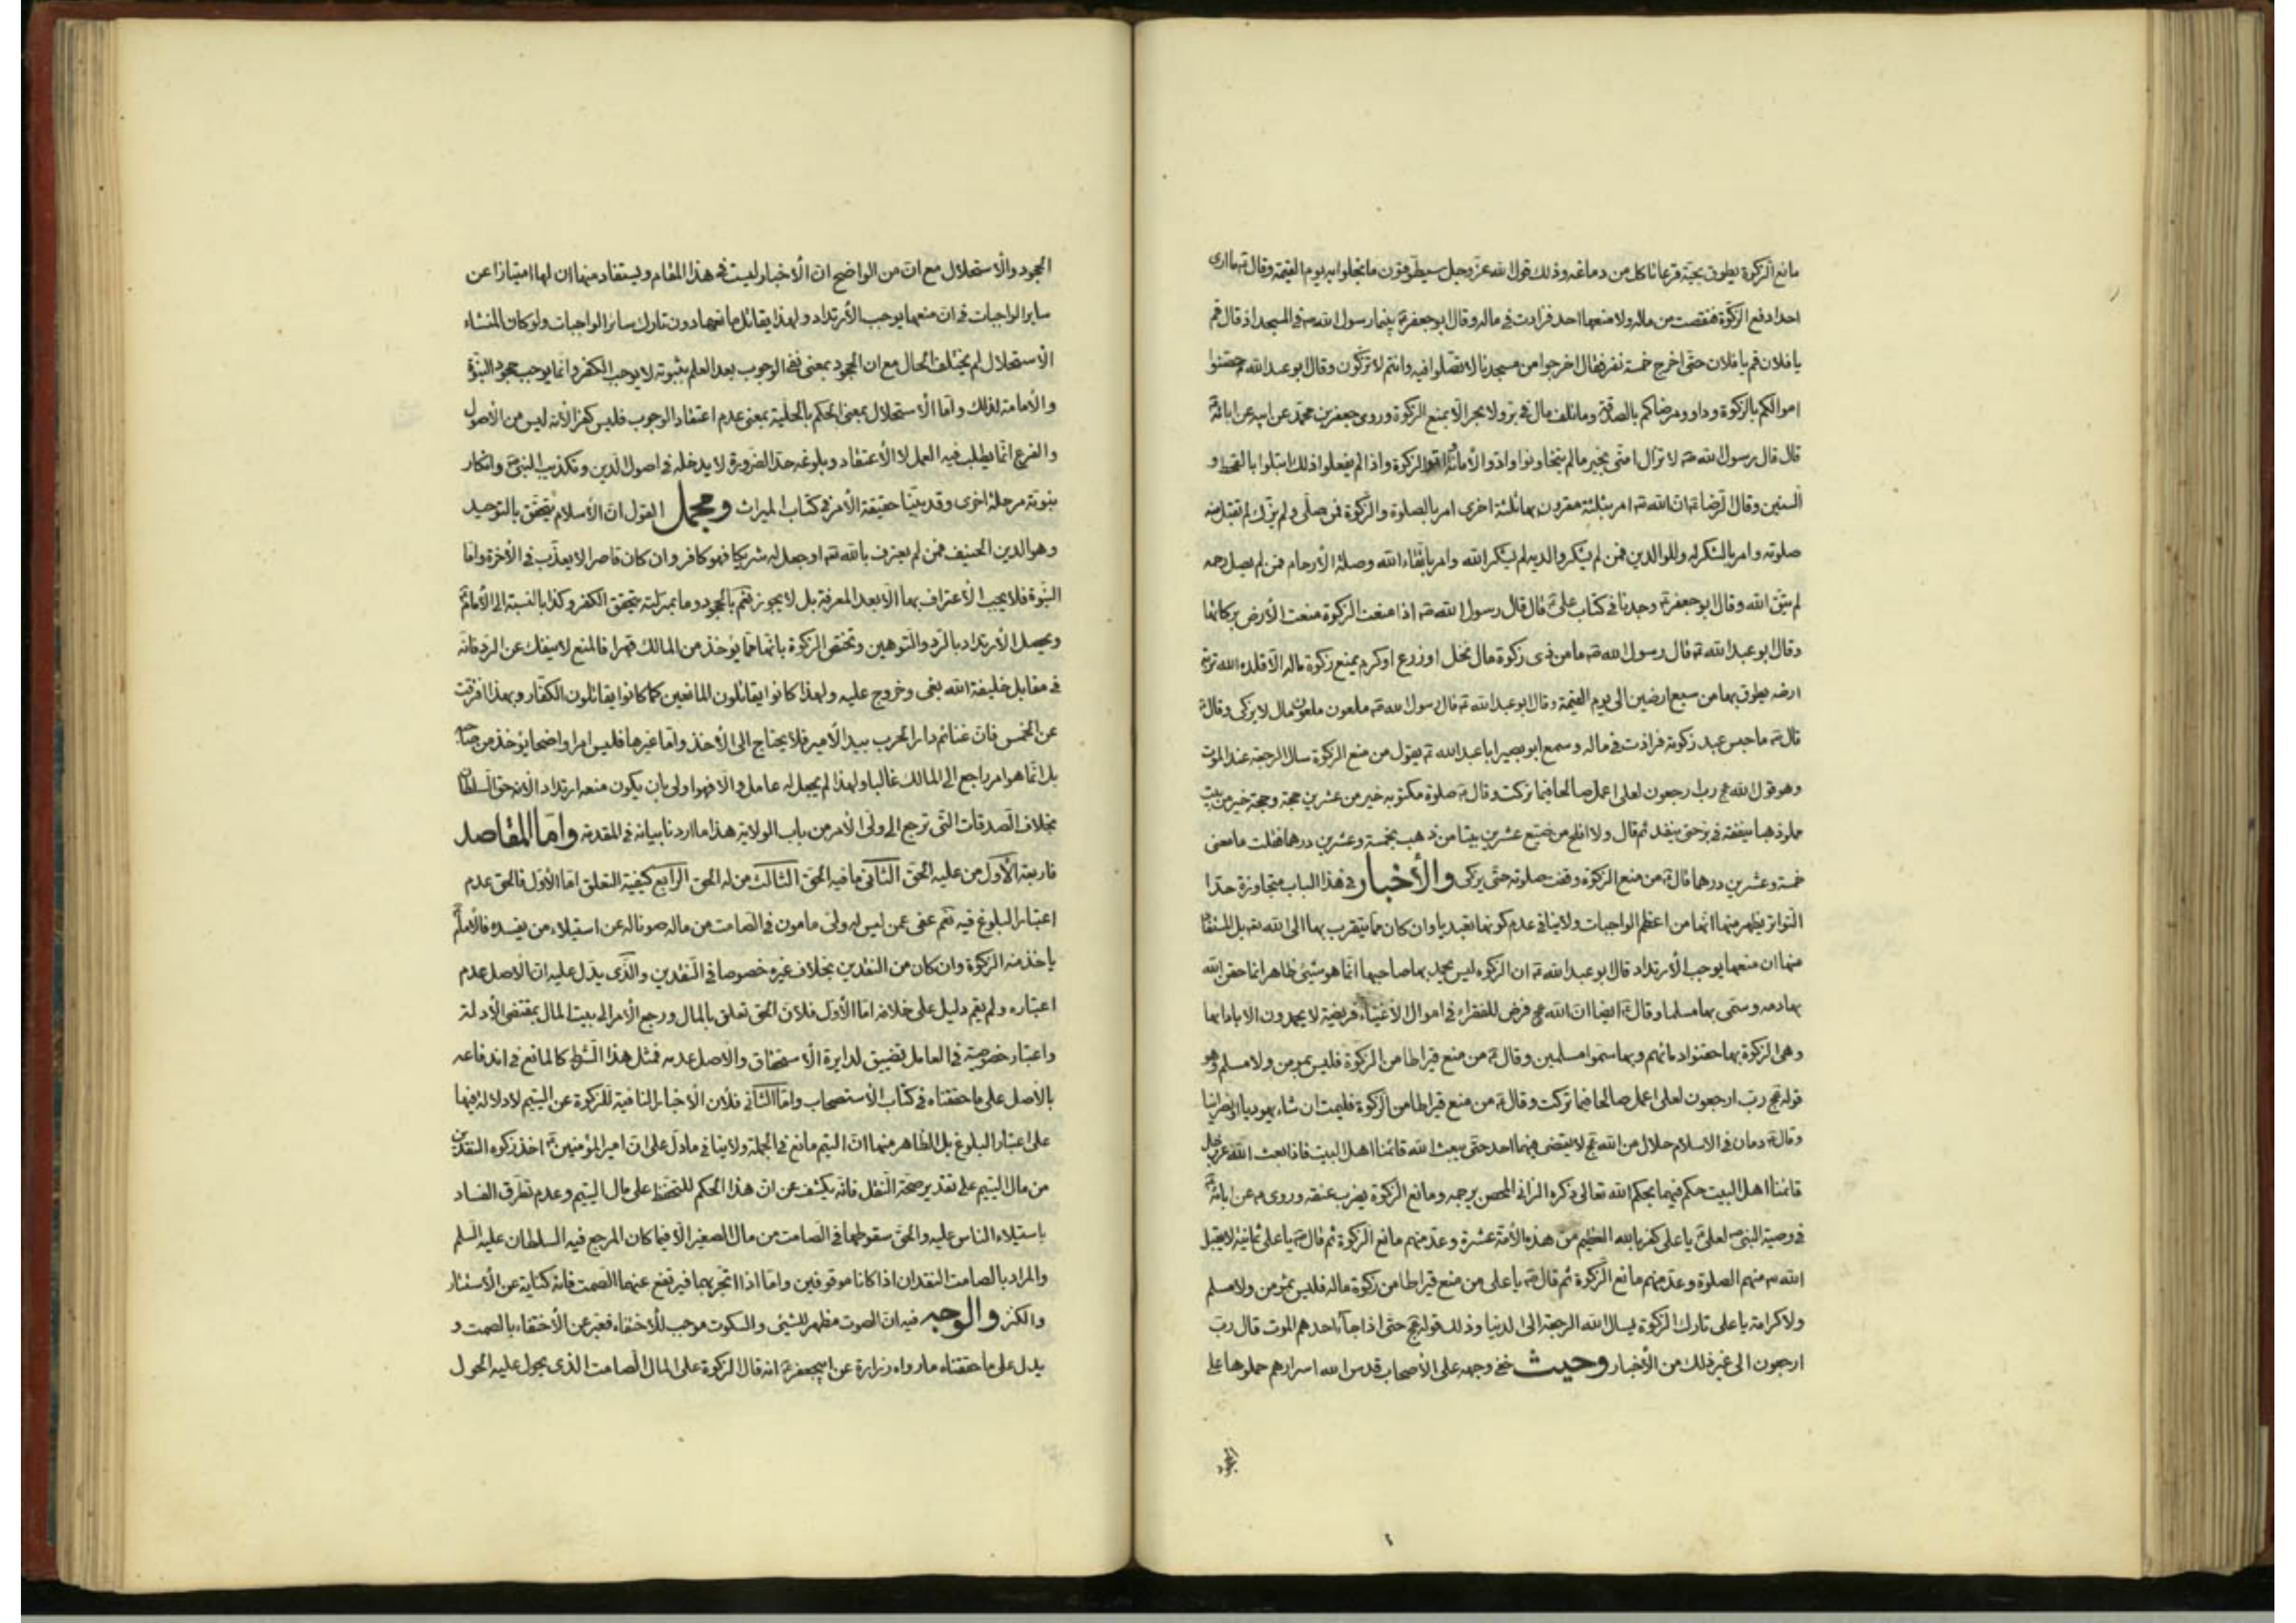 مانع الزكوة يطوق بحيّة قرعا تاكل من دماغه وذلك قول الله عزّ وجل سيطوّقون ما بخلوا به يوم القيمة وقال ما ادى
احد دفع الزكوة فنقصت من ماله ولا منعها احد فزادت فى ماله وقال ابو جعفر بينما رسول الله فى المسجد اذ قال قم
يا فلان قم يا فلان حتى اخرج خمسة نفر فقال اخرجوا من مسجدنا لا تصلوا فيه وانتم لا تزكون وقال ابو عبد الله حصنوا
اموالكم بالزكوة وداووا مرضاكم بالصدقة وما تلف مال فى برّ ولا بحر الّا بمنع الزكوة وروى جعفر بن محمد عن ابيه عن ابائه
قال قال رسول الله لا تزال امتى بخير مالم يتخاونوا وادّوا الأمانة الزكوة واذا لم يفعلوا ذلك ابتلوا بالقحط و
السنين وقال الرضا انّ الله امر بثلثة مقرون بها ثلثة اخرى امر بالصلوة والزكوة فمن صلّى ولم يزّك لم تقبل منه
صلوته وامر بالشكر له وللوالدين فمن لم يشكر والديه لم يشكر الله وامر باتقاء الله وصلة الأرحام فمن لم يصل رحمه
لم يتق الله وقال ابو جعفر وجدنا فى كتاب علىّ قال قال رسول الله اذا منعت الزكوة منعت الأرض بركاتها
وقال ابو عبد الله قال رسول الله ما من ذى زكوة مال نخل او زرع او كرم يمنع زكوة ماله الّا قلده الله تربة
ارضه يطوق بها من سبع ارضين الى يوم القيمة وقال ابو عبد الله قال رسول الله ملعون ملعون مال لا يزكى وقال
قال ما حبس عبد زكوة فزادت فى ماله وسمع ابو بصير ابا عبد الله يقول من منع الزكوة سال الرجعة عند الموت
وهو قول الله رب ارجعون لعلى اعمل صالحا فيما تركت وقال صلوة مكتوبه خير من عشرين حجة وحجة خير من بيت
مملو ذهبا ينفقه فى برّ حتى ينفد ثم قال ولا افلح من ضيّع عشرين بيتا من ذهب بخمسة وعشرين درهما فقلت ما معنى
خمسة وعشرين درهما قال من منع الزكوة وقفت صلوته حتى يزكى والأخبار فى هذا الباب متجاوزة حدّا
التواتر يظهر منها انها من اعظم الواجبات ولا ينافى عدم كونها تعبديا وان كان مما يتقرب بها الى الله بل المستفاد
منها ان منعها يوجب الأرتداد قال ابو عبد الله ان الزكوه ليس يحمد بها صاحبها انّما هو شيئ ظاهر انما حقن الله
بها دمه وسمّى بها مسلما وقال ايضا انّ الله فرض للفقراء فى اموال الأغنياء فريضة لا يحمدون الّا باداءها
وهى الزكوة بها حقنوا دمائهم وبها سمّوا مسلمين وقال من منع قيراطا من الزكوة فليس بمومن ولا مسلم وهو
قوله رب ارجعون لعلى اعمل صالحا فيما تركت وقال من منع قيراطا من الزكوة فليمت ان شاء يهوديا او نصرانيا
وقال دمان فى الاسلام حلال من الله لا يقضى فيهما احد حتى يبعث الله قائمنا اهل البيت فاذا بعث الله عز وجل
قائمنا اهل البيت حكم فيهما بحكم الله تعالى ذكره الزانى المحصن يرجمه ومانع الزكوة يضرب عنقه وروى عن ابائه
فى وصية النبى لعلىّ يا على كفر بالله العظيم من هذه الأمة عشرة وعدّ منهم مانع الزكوة ثم قال يا على ثمانية لا يقبل
الله منهم الصلوة وعدّ منهم مانع الزكوة ثم قال يا على من منع قيراطا من زكوة ماله فليس بمؤمن ولا مسلم
ولا كرامة يا على تارك الزكوة يسال الله الرجعة الى الدنيا وذلك قوله حتى اذا جاء احدهم الموت قال ربّ
ارجعون الى غير ذلك من الأخبار وحيث خفى وجهه على الأصحاب قدس الله اسرارهم حملوها على
الجحود
الجحود والأستحلال مع انّ من الواضح انّ الأخبار ليست فى هذا المقام ويستفاد منها ان لها امتيازا عن
ساير الواجبات فى انّ منعها يوجب الأرتداد ولهذا يقاتل مانعها دون تارك ساير الواجبات ولو كان المنشاء
الأستحلال لم يختلف الحال مع ان الجحود بمعنى نفى الوجوب بعد العلم بثبوته لا يوجب الكفر وانّما يوجب جحود النبوّة
والأمامة لذلك وامّا الأستحلال بمعنى الحكم بالحلّية بمعنى عدم اعتقاد الوجوب فليس كفرا لأنه ليس من الأصول
والفرع انّما يطلب فيه العمل لا الأعتقاد وبلوغه حدّ الضرورة لا يدخله فى اصول الدين وتكذيب النبىّ وانكار
نبوّته مرحلة اخرى وقد بيّنا حقيقة الأمر فى كتاب الميراث ومجمل القول انّ الأسلام يتحقق بالتوحيد
وهو الدين الحنيف فمن لم يعترف بالله او جعل له شريكا فهو كافر وان كان قاصرا لا يعذّب فى الأخرة وامّا
النبوّة فلا يجب الأعتراف بها الّا بعد المعرفة بل لا يجوز نعم بالجحود وما بمنزلته يتحقق الكفر وكذا بالنسبة الى الأمام
ويحصل الأرتداد بالردّ والتوهين وتختص الزكوة بانّها مما يؤخذ من المالك قهرا فالمنع لا ينفك عن الردّ فانّه
فى مقابل خليفة الله بغى وخروج عليه ولهذا كانوا يقاتلون المانعين كما كانوا يقاتلون الكفّار وبهذا افرقت
عن الخمس فانّ غنائم دار الحرب بيد الأمير فلا يحتاج الى الأخذ وامّا غيرها فليس امرا واضحا يؤخذ من صاحبه
بل انّما هو امر راجع الى المالك غالبا ولهذا لم يجعل له عامل والّا فهو اولى بان يكون منعه ارتدادا لأنه حق السلطان
بخلاف الصدقات التى ترجع الى ولىّ الأمر من باب الولاية هذا ما اردنا بيانه فى المقدمة وامّا المقاصد
فاربعة الأوّل من عليه الحقّ الثانى ما فيه الحقّ الثالث من له الحق الرابع كيفية التعلق امّا الأوّل فالحق عدم
اعتبار البلوغ فيه نعم عفى عمن ليس له ولىّ مامون فى الصامت من ماله صونا له عن استيلاء من يفسده فالأمام
ياخذ منه الزكوة وان كان من النقدين بخلاف غيره خصوصا فى النقدين والذّى يدّل عليه انّ الاصل عدم
اعتباره ولم يقم دليل على خلافه امّا الأوّل فلانّ الحق تعلق بالمال ورجع الأمر الى بيت المال بمقتضى الأدلة
واعتبار خصوصيّة فى العامل تضييق لدايرة الأستحقاق والاصل عدمه فمثل هذا الشرط كالمانع فى اندفاعه
بالأصل على ما حققناه فى كتاب الأستصحاب وامّا الثانى فلأن الأخبار النافية للزكوة عن اليتيم لا دلالة فيها
على اعتبار البلوغ بل الظاهر منها انّ اليتيم مانع فى الجملة ولا ينافى ما دلّ على انّ امير المؤمنين اخذ زكوه النقدين
من مال اليتيم على تقدير صحّة النقل فانّه يكشف عن انّ هذا الحكم للتحفظ على مال اليتيم وعدم تطرّق الفساد
باستيلاء الناس عليه والحقّ سقوطها فى الصامت من مال الصغير الّا فيما كان المرجع فيه السلطان عليه السلم
والمراد بالصامت النقدان اذا كانا موقوفين وامّا اذا اتّجر بهما فيرتفع عنهما الصمت فانّه كناية عن الأستتار
والكنز والوجه فيه انّ الصوت مظهر للشيئ والسكوت موجب للأختفاء فعبّر عن الأختفاء بالصمت و
يدل على ما حققناه ما رواه زرارة عن ابيجعفر انه قال الزكوة على المال الصامت الذى يحول عليه الحول